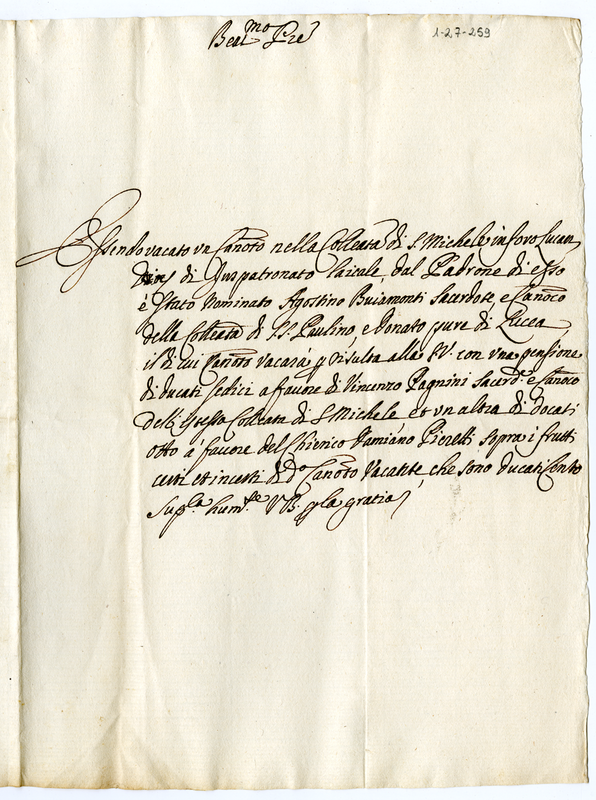 Beat.mo Pre
1-27-259
Essendo vacato un Canoto nella Colleata di S. Michele in foro Lucan
di Juspatronato laicale, dal Padrone di esso
è stato nominato Agostino Buiamonti Sacerdote e Canoco
della Colleata di S.S. Paulino, e Donato pure di Lucca,
il di cui Canoto vacarà p risulta alla SV. con una pensione
di ducati sedici a favore di Vincenzo Pagnini Sacerd.e e Canoco
dell'istessa Colleata di S. Michele et un altra di docati
otto á favore del Chierico Damiano Pieretti sopra i frutti
certi et incerti di d.o Canoto Vacante, che sono ducati Cento
Sup.la hum.te VB. p la gratia